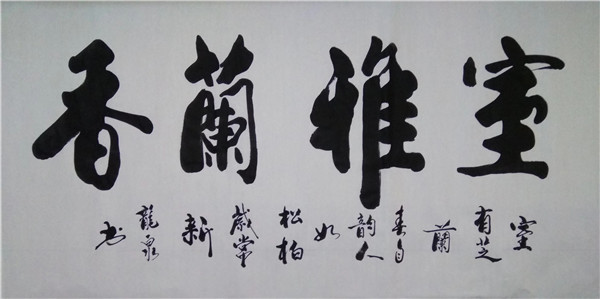 室雅蘭香
室
有芝
蘭
春自
韻人
如
松柏
歲常
新
龍泉
书